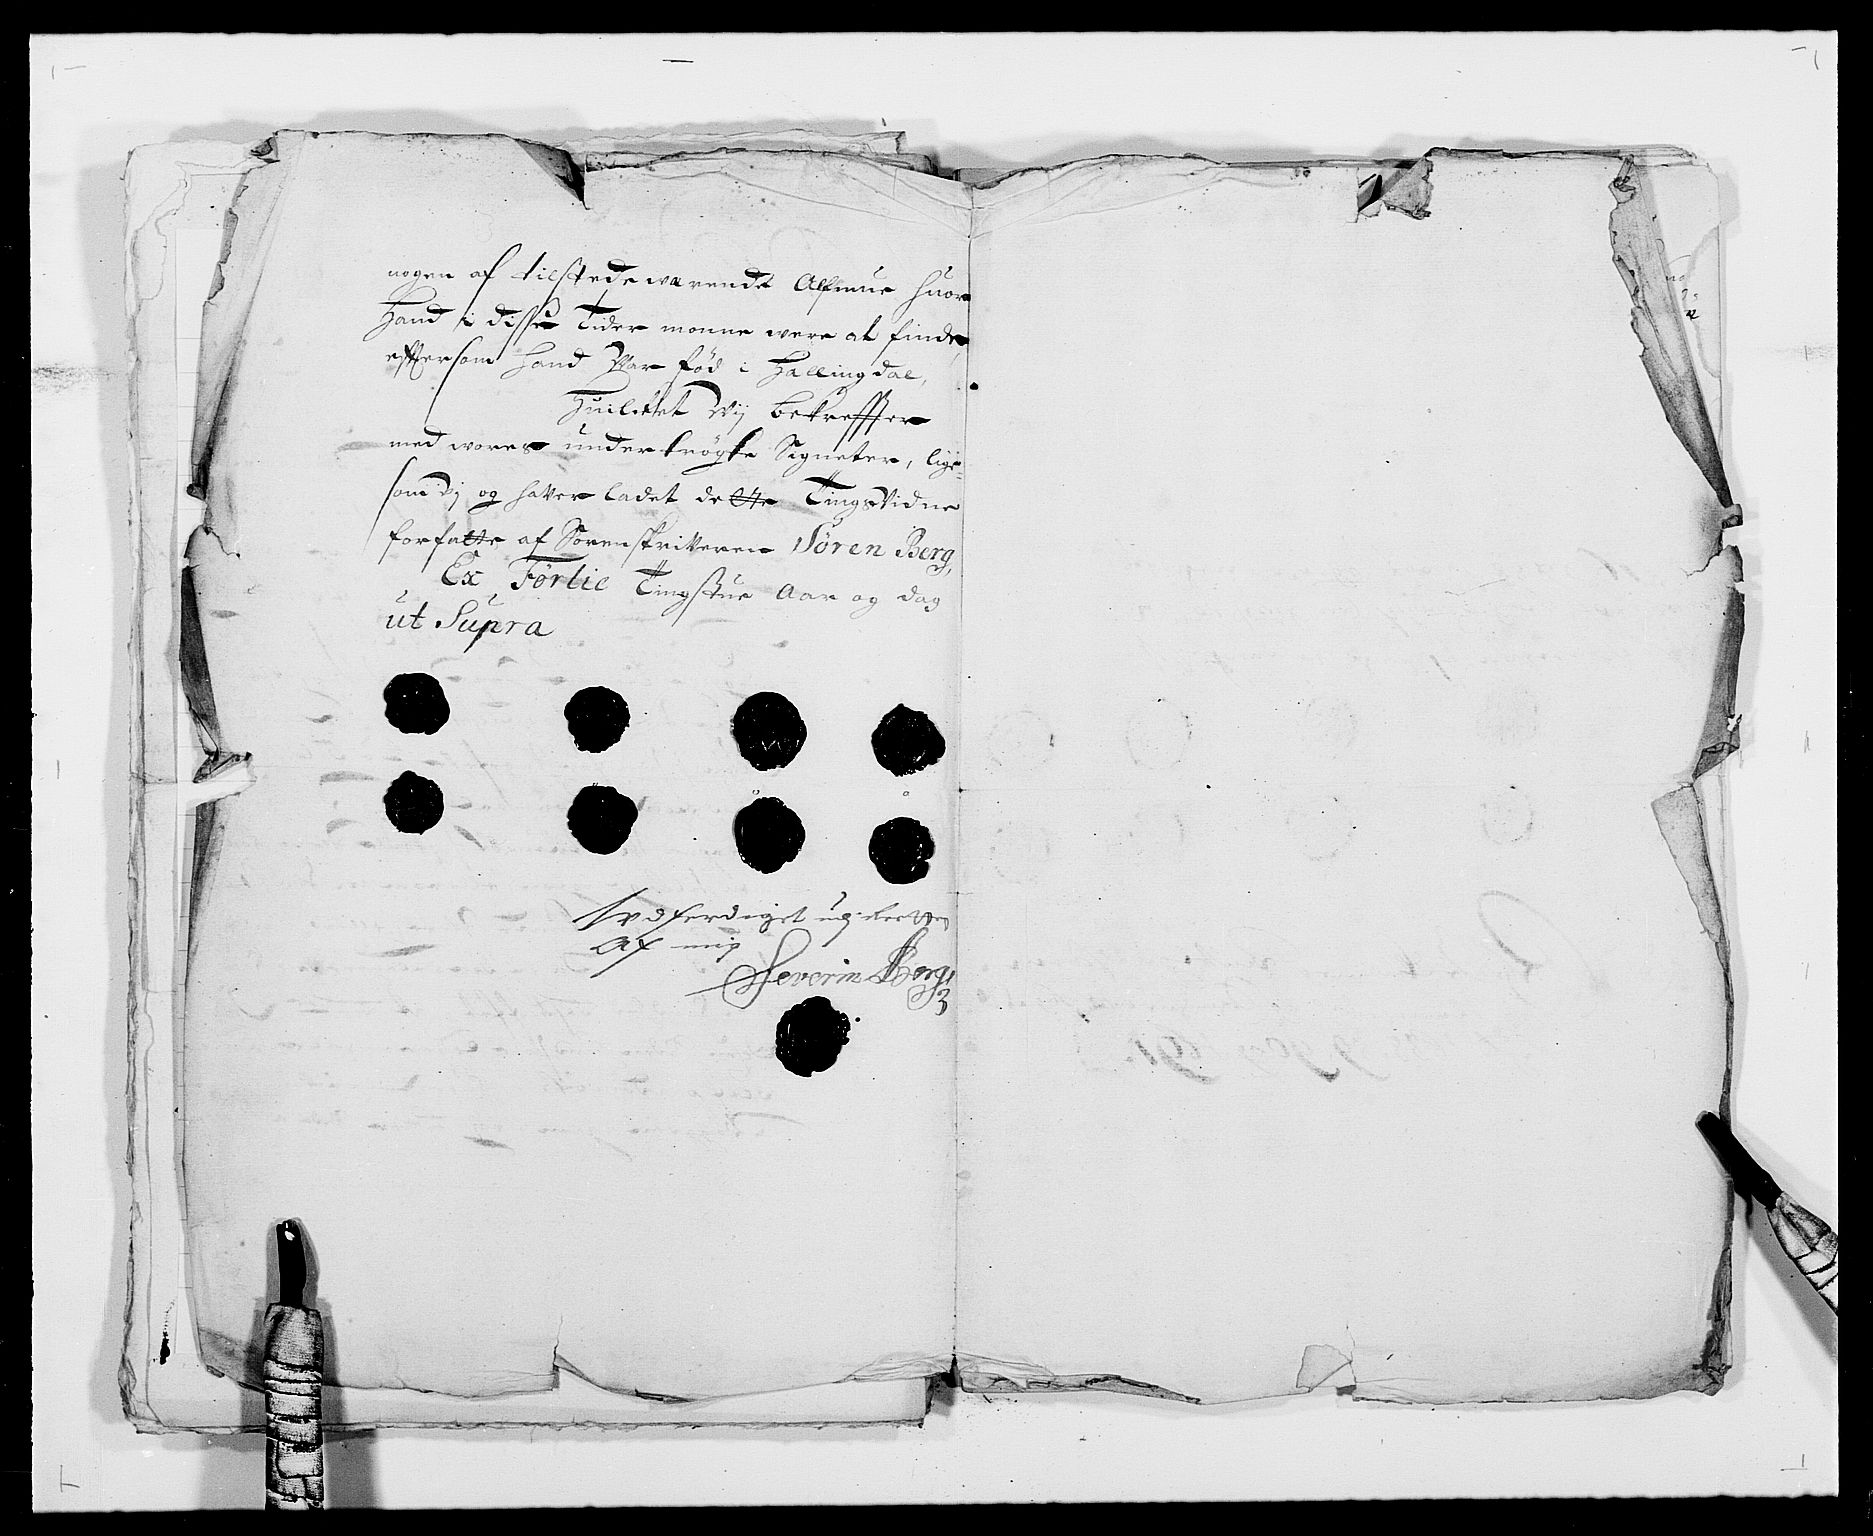 nogen af tilstedeværende Alfmue huor
Hand i disse Tider monne were at finde,
eftersom hand Var fød i Hallingdal,
Huilchet Wij bekreffter
med wores undertrögte Signeter, lige-
som Vj og hafver ladet dette TingsVidne
forfatte af Sorenskrifveren Sören Berg,
Ex Förlie Tingstue Aar og dag
ut Supra
Udferdiget udj Retten
Af mig
Severin Berg